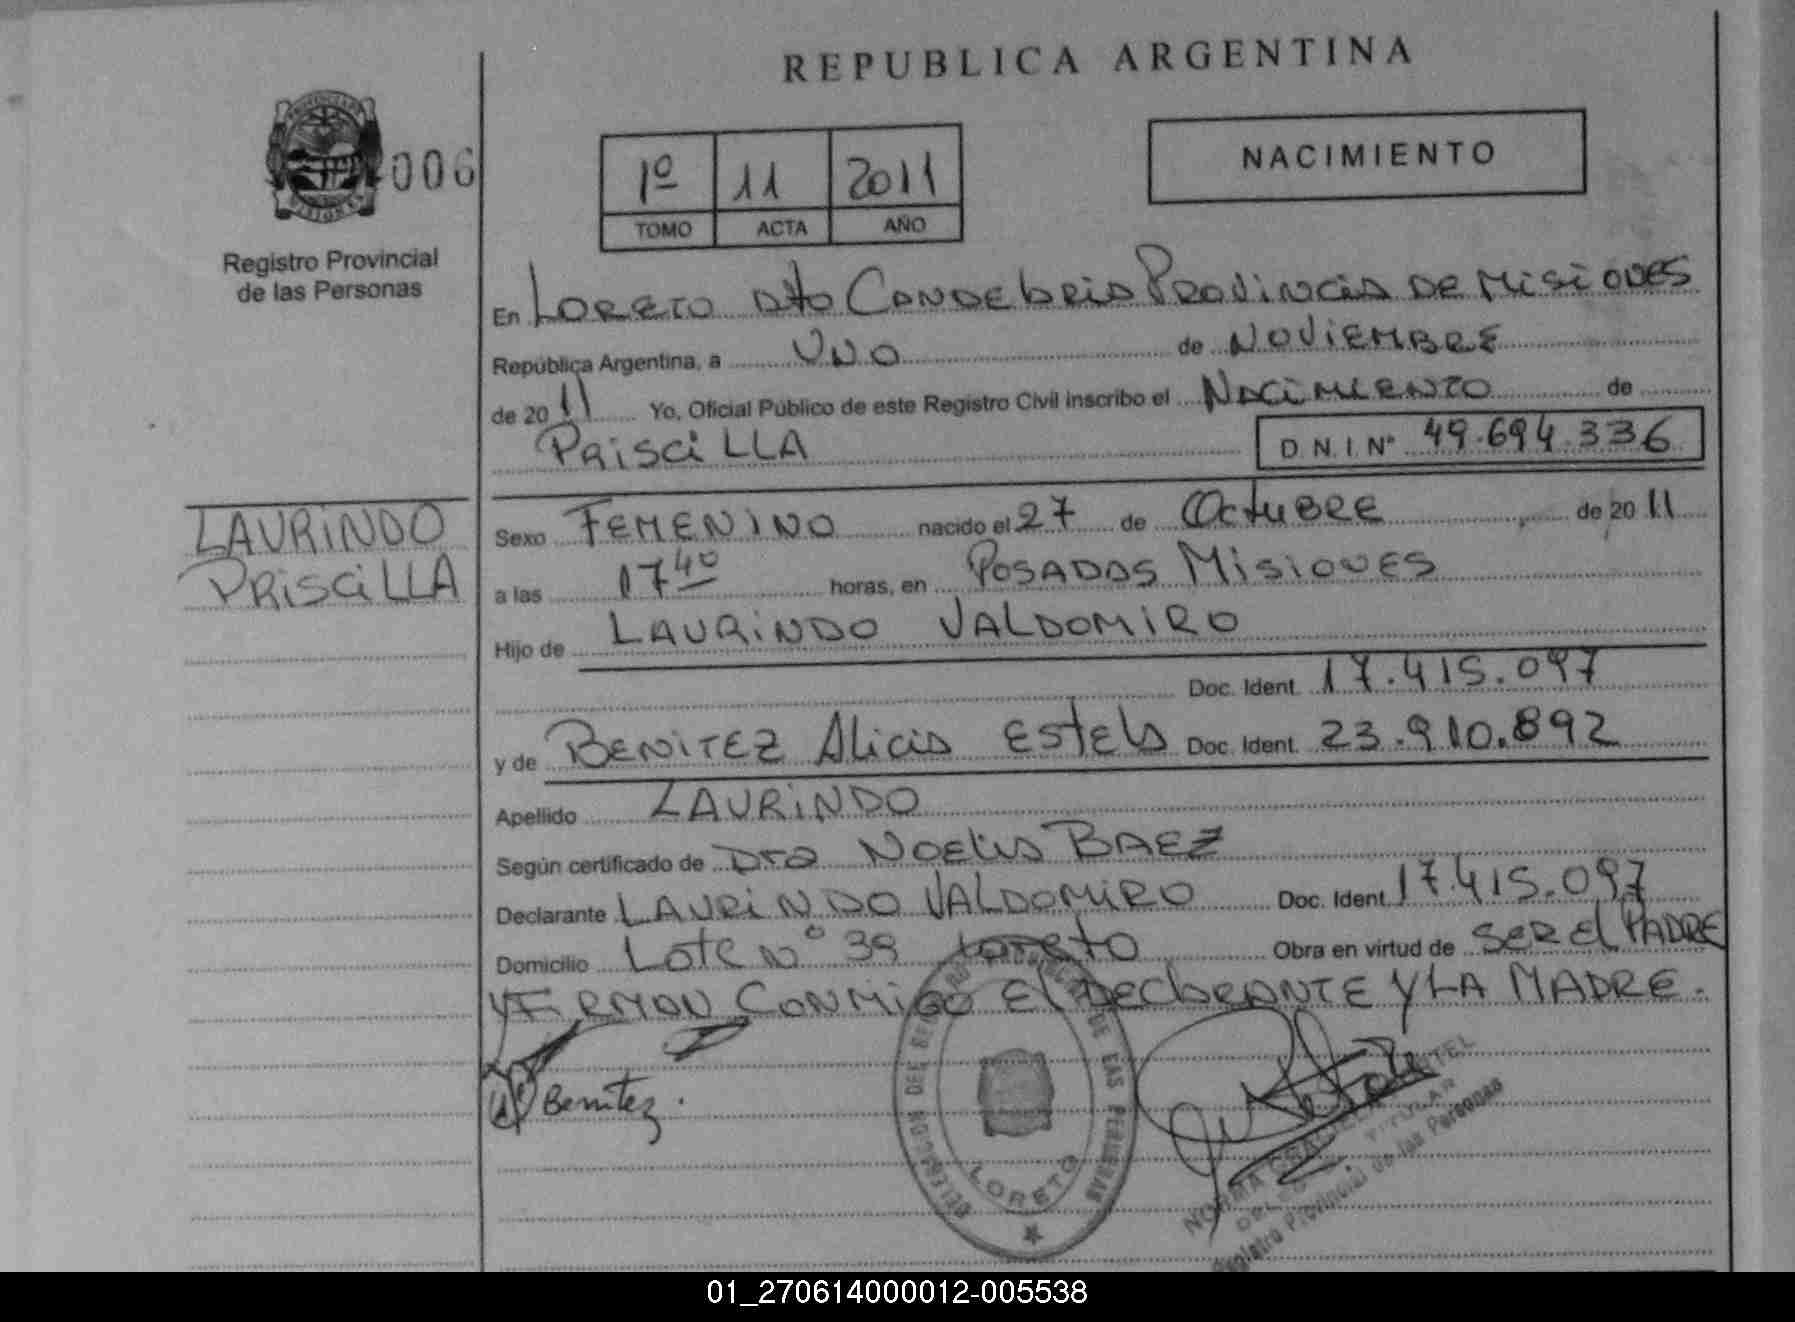 REPUBLICA ARGENTINA
006
1º 11 2011
TOMO ACTA AÑO
NACIMIENTO
Registro Provincial
de las Personas
En LORETO Dto CANDELARIA PROVINCIA DE MISIONES
República Argentina, a UNO de NOVIEMBRE
de 2011 Yo, Oficial Público de este Registro Civil inscribo el NACIMIENTO de
PRISCILLA D.N.I. Nº 49.694.336
LAURINDO
PRISCILLA
Sexo FEMENINO nacido el 27 de Octubre de 2011
a las 17 40 horas, en POSADAS MISIONES
Hijo de LAURINDO VALDOMIRO
Doc. Ident. 17.415.097
y de BENITEZ Alicia Estela Doc. Ident. 23.910.892
Apellido LAURINDO
Según certificado de Dra NOELIA BAEZ
Declarante LAURINDO VALDOMIRO Doc. Ident 17.415.097
Domicilio Lote Nº 39 Loreto Obra en virtud de SER El PADRE
Y FIRMAN CONMIGO El DECLARANTE Y LA MADRE.
Benitez.
DE LAS PERSONAS
LORETO
NORMA
TITULAR
Registro Provincial de las Personas
01_270614000012-005538